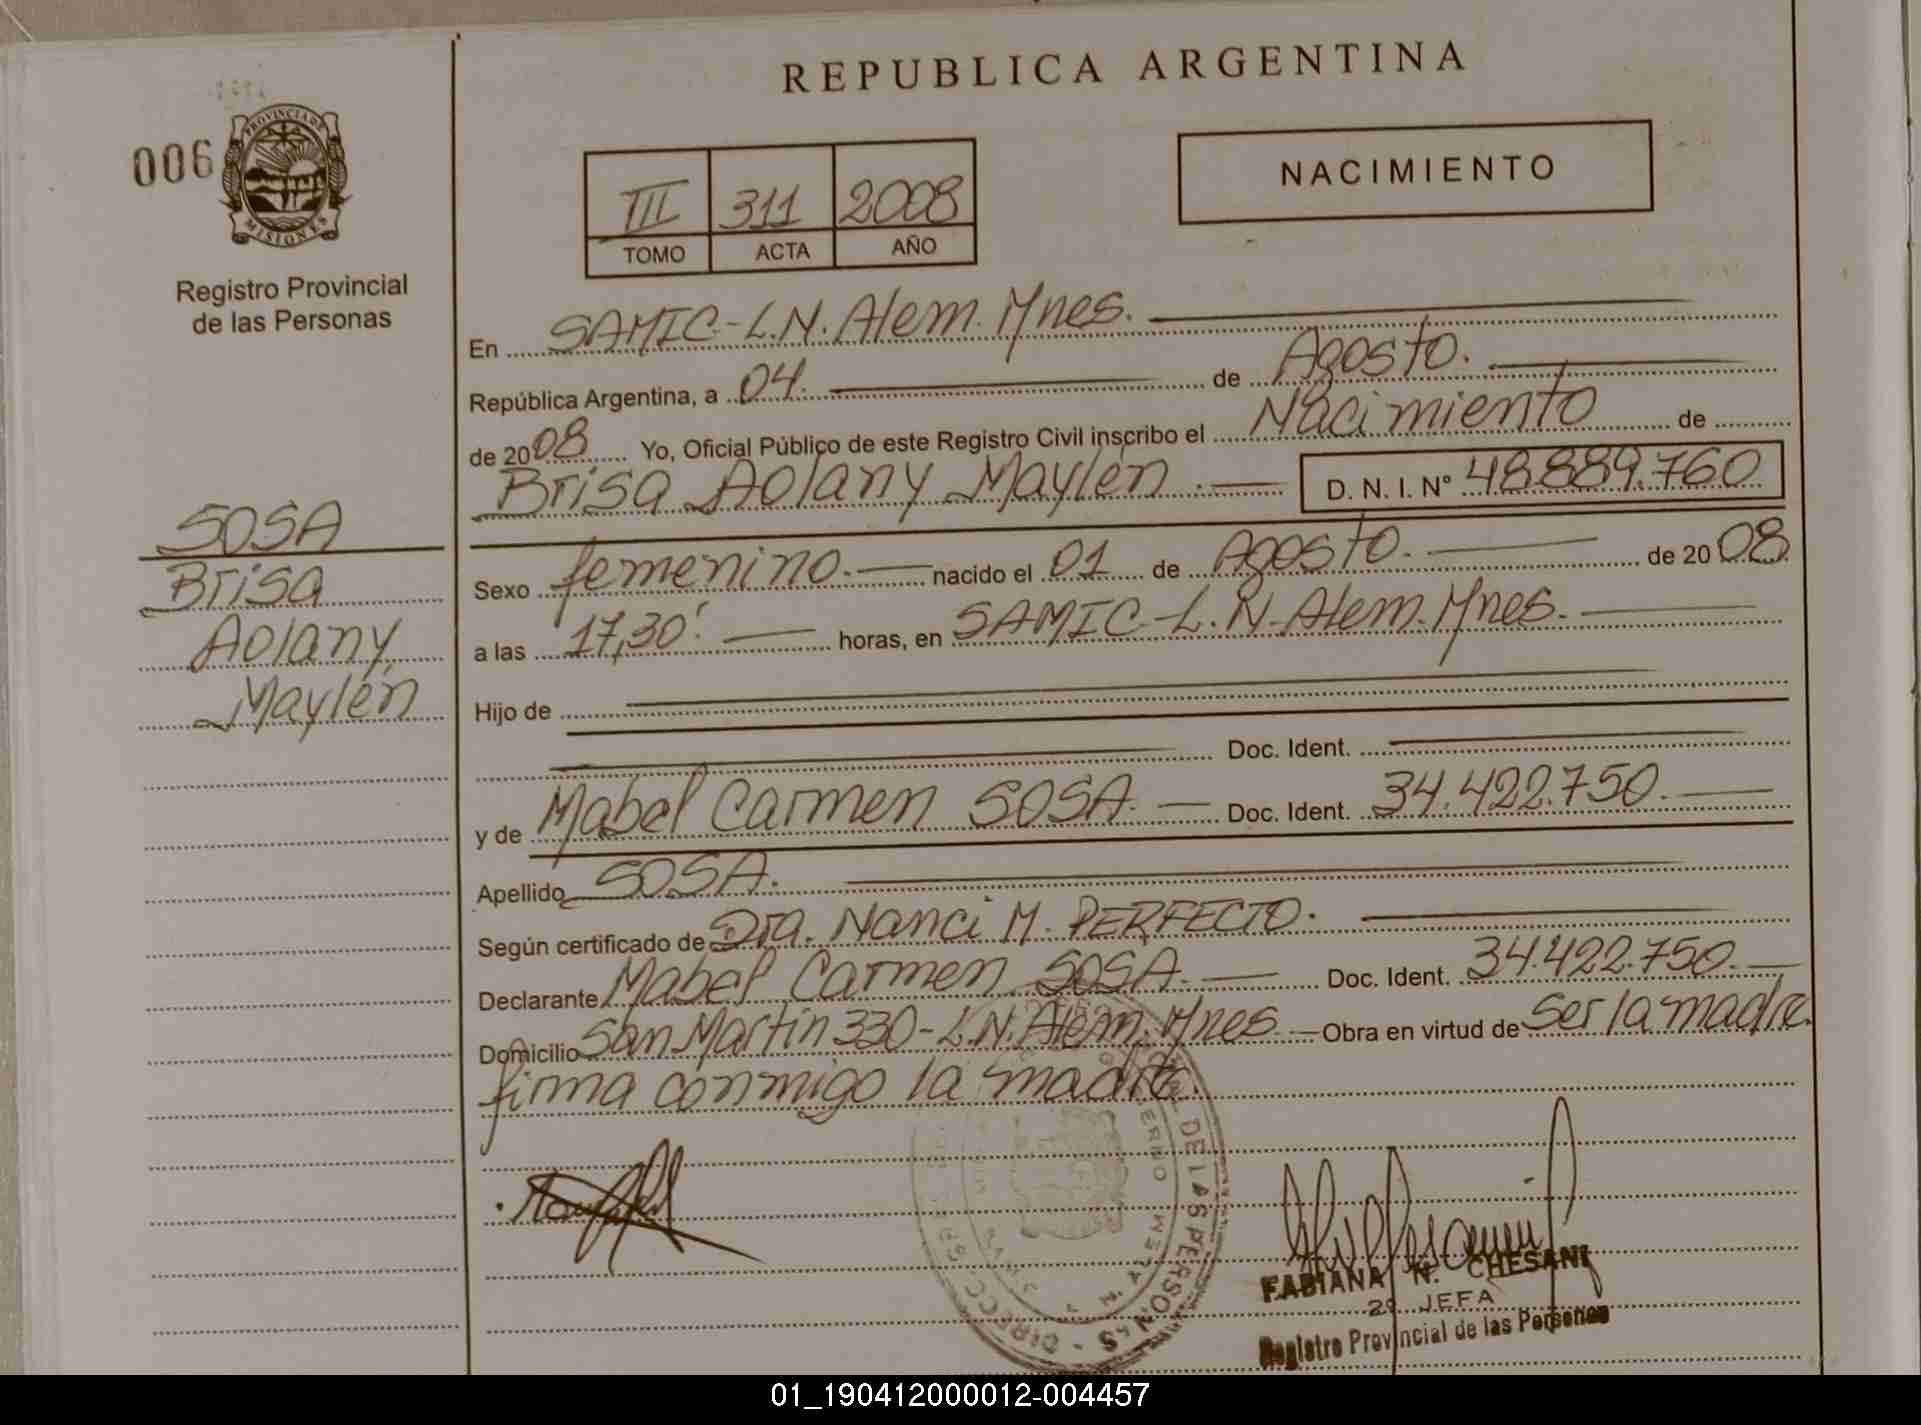 REPUBLICA ARGENTINA
006
PROVINCIA DE MISIONES
III 311 2008
TOMO ACTA AÑO
NACIMIENTO
Registro Provincial
de las Personas
En SAMIC-L.N. Alem. Mnes.
República Argentina, a 04. de Agosto.
de 2008 Yo, Oficial Público de este Registro Civil inscribo el Nacimiento de
Brisa Aolany Maylén. D. N. I. Nº 48.889.760
SOSA
Brisa
Aolany
Maylén
Sexo femenino. nacido el 01 de Agosto. de 2008.
a las 17,30'. horas, en SAMIC-L.N-Alem. Mnes.
Hijo de
Doc. Ident.
y de Mabel Carmen SOSA. Doc. Ident. 34.422.750.
Apellido SOSA.
Según certificado de Dra. Nanci M. PERFECTO.
Declarante Mabel Carmen SOSA. Doc. Ident. 34.422.750.
Domicilio San Martín 330-L.N. Alem. Mnes. Obra en virtud de Ser la madre.
firma conmigo la madre.
DE LAS PERSONAS
FABIANA N. CHESANI
2º JEFA
Registro Provincial de las Personas
01_190412000012-004457